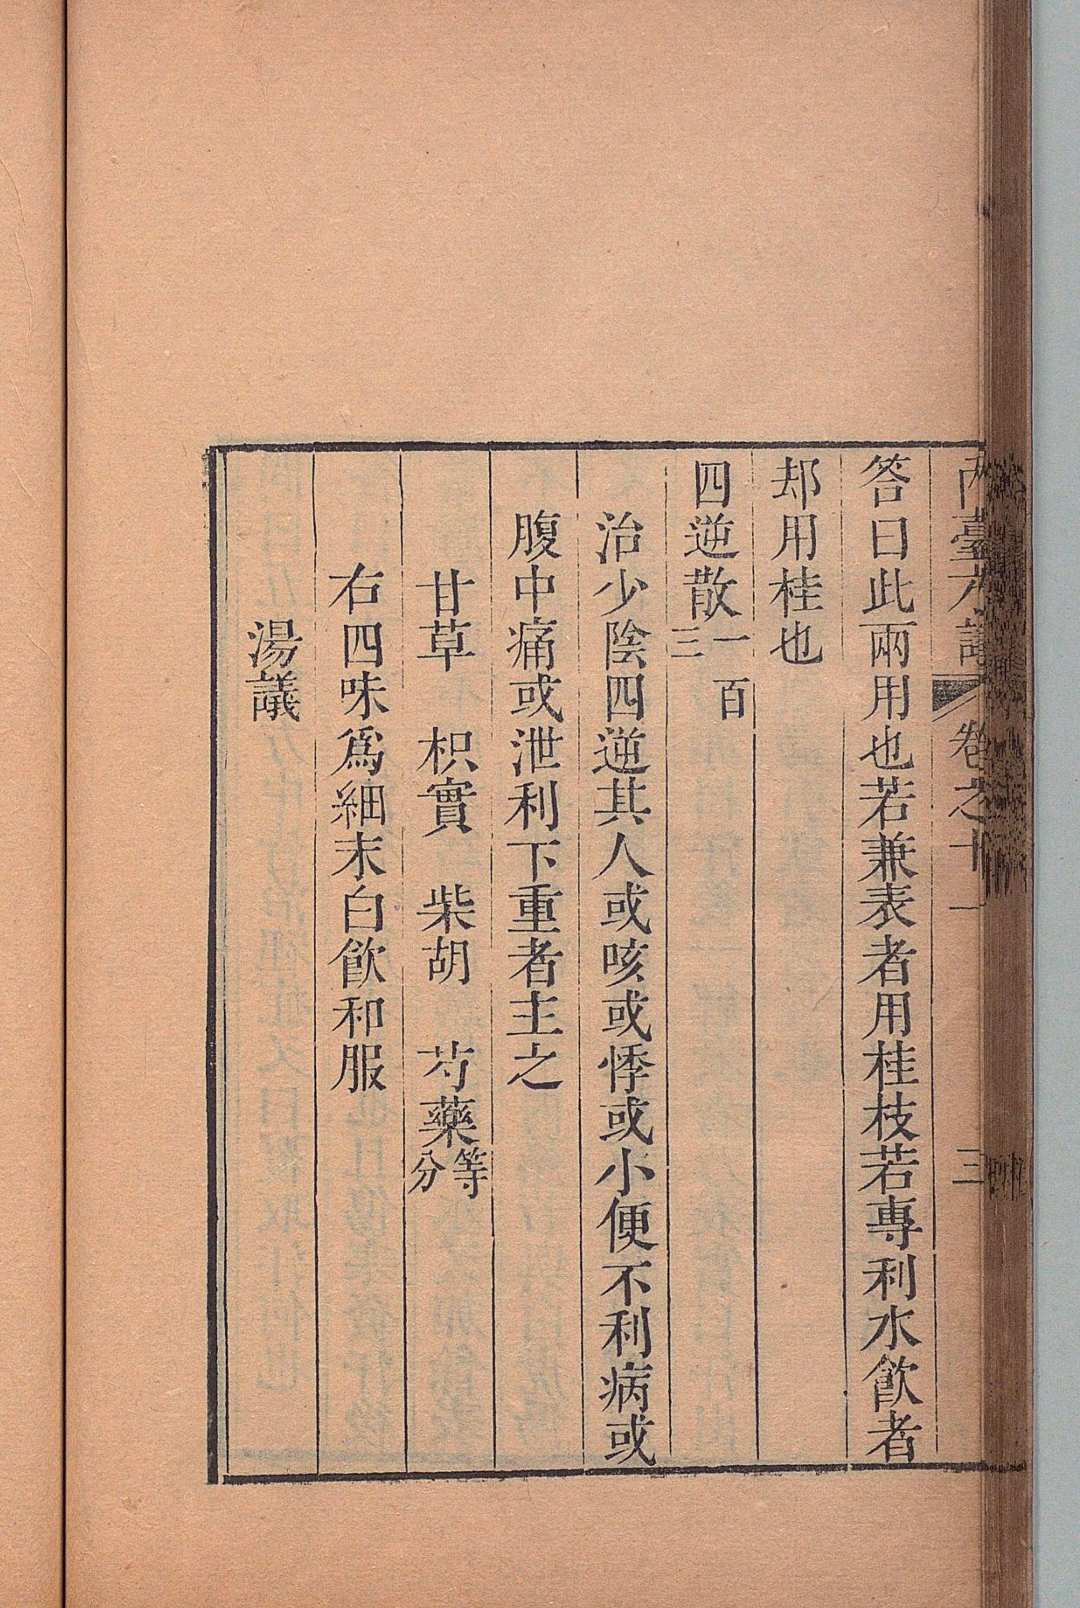 答曰此兩用也若兼表者用桂枝若專利水飮者
却用桂也
四逆散一百三
治少陰四逆其人或咳或悸或小便不利病或
腹中痛或泄利下重者主之
甘草 枳實 柴胡 芍藥等分
右四味爲細末白飮和服
湯議
卷之十一 三